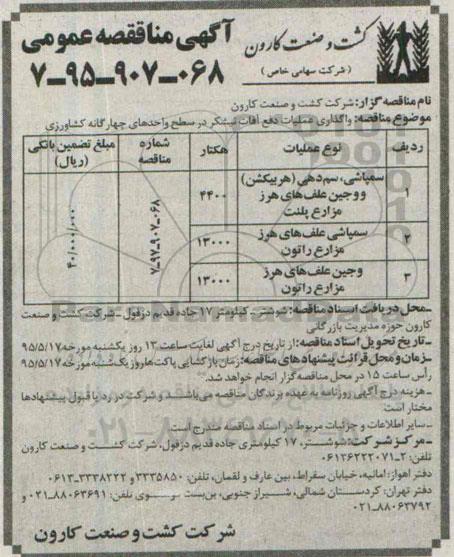 کشت و صنعت کارون
( شرکت سهامی خاص )
آگهی مناقصه عمومی
۷-۹۵-۹۰۷-۰۶۸
نام مناقصه گزار: شرکت کشت و صنعت کارون
موضوع مناقصه: واگذاری عملیات دفع آفات نیشکر در سطح واحدهای چهارگانه کشاورزی
ردیف نوع عملیات هکتار شماره مناقصه مبلغ تضمین بانکی (ریال)
۱ سمپاشی، سم‌دهی (هربیکشن) و وجین علف‌های هرز مزارع پلنت ۴۴۰۰
۲ سمپاشی علف‌های هرز مزارع راتون ۱۳۰۰۰
۳ وجین علف‌های هرز مزارع راتون ۱۳۰۰۰
ـ محل دریافت اسناد مناقصه: شوشتر- کیلومتر ۱۷ جاده قدیم دزفول - شرکت کشت و صنعت
کارون حوزه مدیریت بازرگانی
ـ تاریخ تحویل اسناد مناقصه: از تاریخ درج آگهی لغایت ساعت ۱۳ روز یکشنبه مورخه ۹۵/۵/۱۷
ـ زمان و محل قرائت پیشنهادهای مناقصه: زمان بازگشایی پاکت‌ها روز یکشنبه مورخه ۹۵/۵/۱۷
رأس ساعت ۱۵ در محل مناقصه‌گزار انجام خواهد شد.
ـ هزینه درج آگهی روزنامه به عهده برندگان مناقصه می‌باشد و شرکت در رد یا قبول پیشنهادها
مختار است
ـ سایر اطلاعات و جزئیات مربوط در اسناد مناقصه مندرج است.
ـ مرکز شرکت: شوشتر، ۱۷ کیلومتری جاده قدیم دزفول، شرکت کشت و صنعت کارون
تلفن: ۲-۰۶۱۳۶۲۲۲۰۷۱
دفتر اهواز: امانیه، خیابان سقراط، بین عارف و لقمان، تلفن: ۳۳۳۵۸۵۰ و ۰۶۱۳-۳۳۳۸۲۲۲
دفتر تهران: کردستان شمالی، شیراز جنوبی، بن‌بست تلفن: ۸۸۰۶۳۶۹۱-۰۲۱ و
۰۲۱-۸۸۰۶۳۷۹۲
شرکت کشت و صنعت کارون